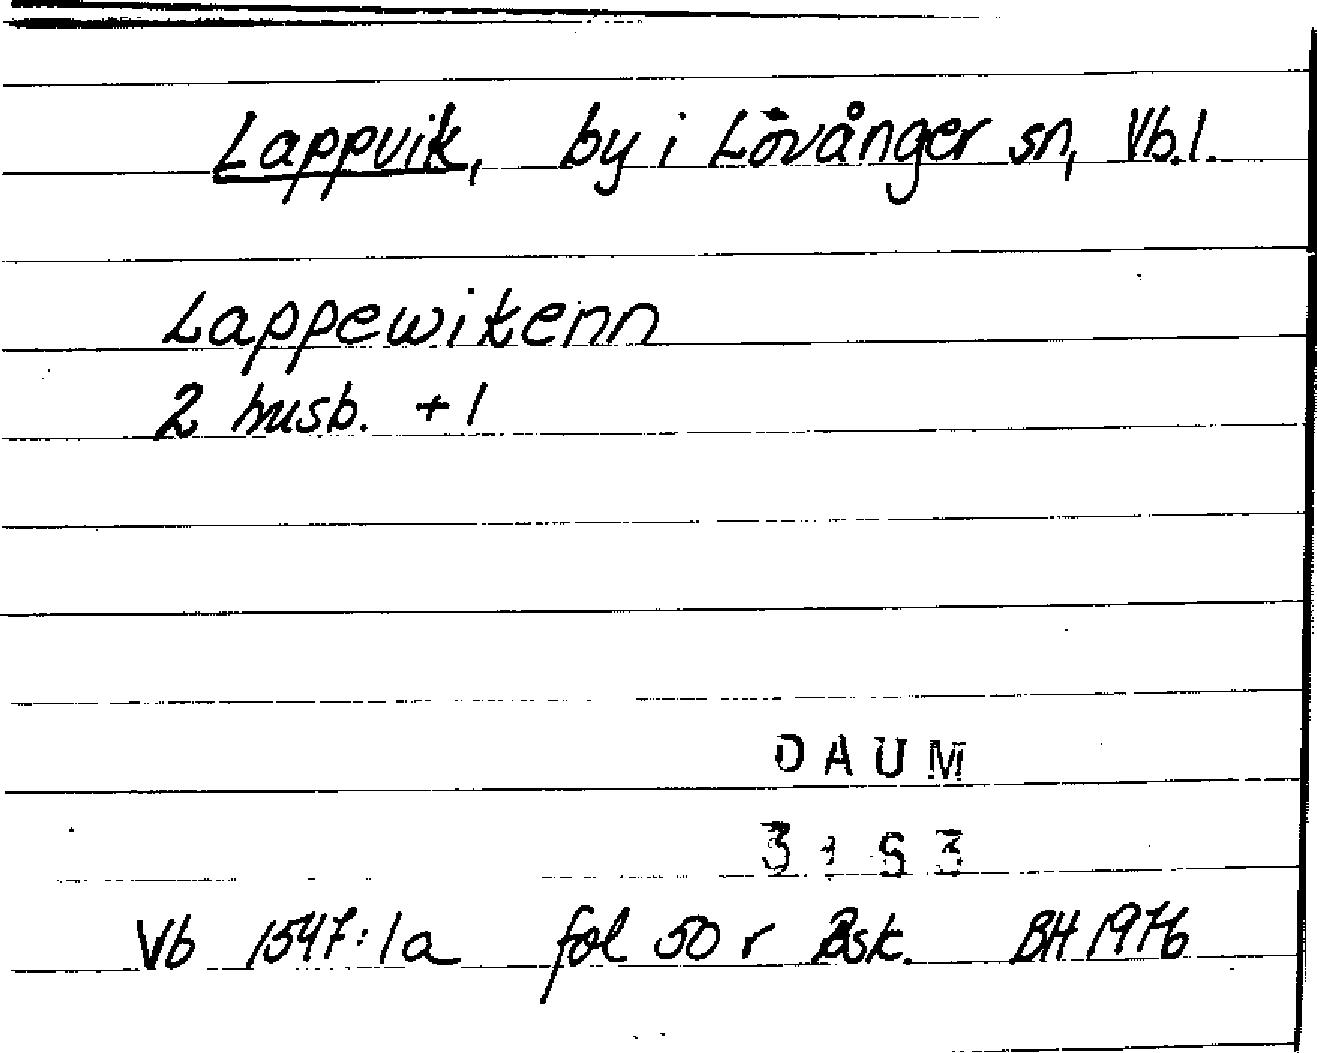 Lappvik, by i Lövånger sn, Vb.l.
Lappewikenn
2 husb. + 1
DAUM
3153
Vb 1547:1a fol 50 r Bsk. BH 1976